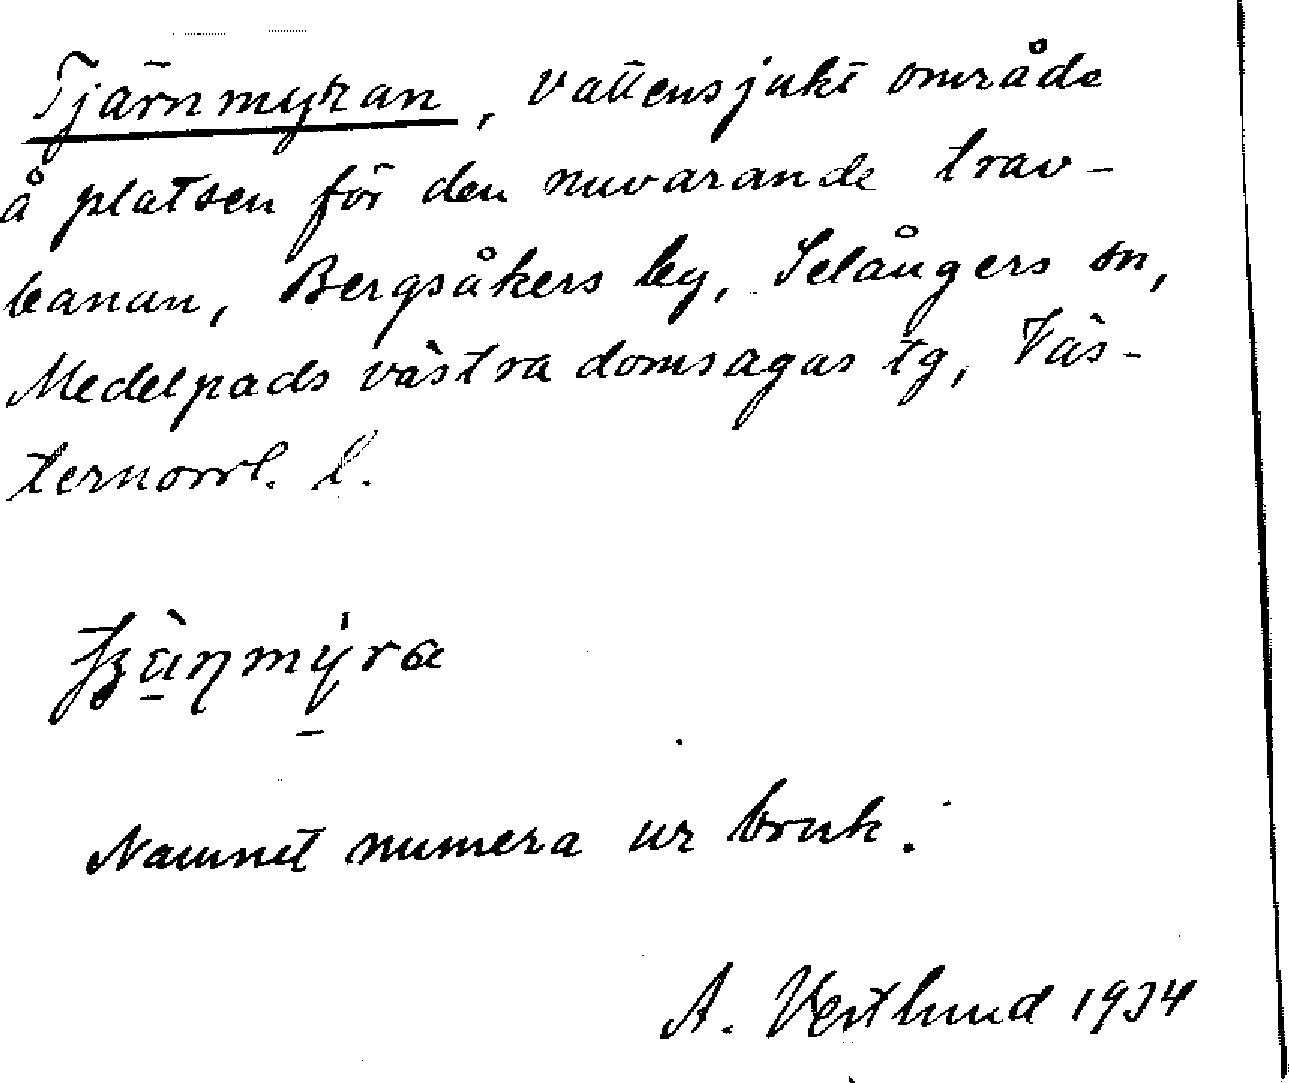 Tjärnmyran, vattensjukt område
å platsen för den nuvarande trav-
banan, Bergsåkers by, Selångers sn,
Medelpads västra domsagas tg, Väs-
ternorrl. l.
Namnet numera ur bruk.
A. Vestlund 1934